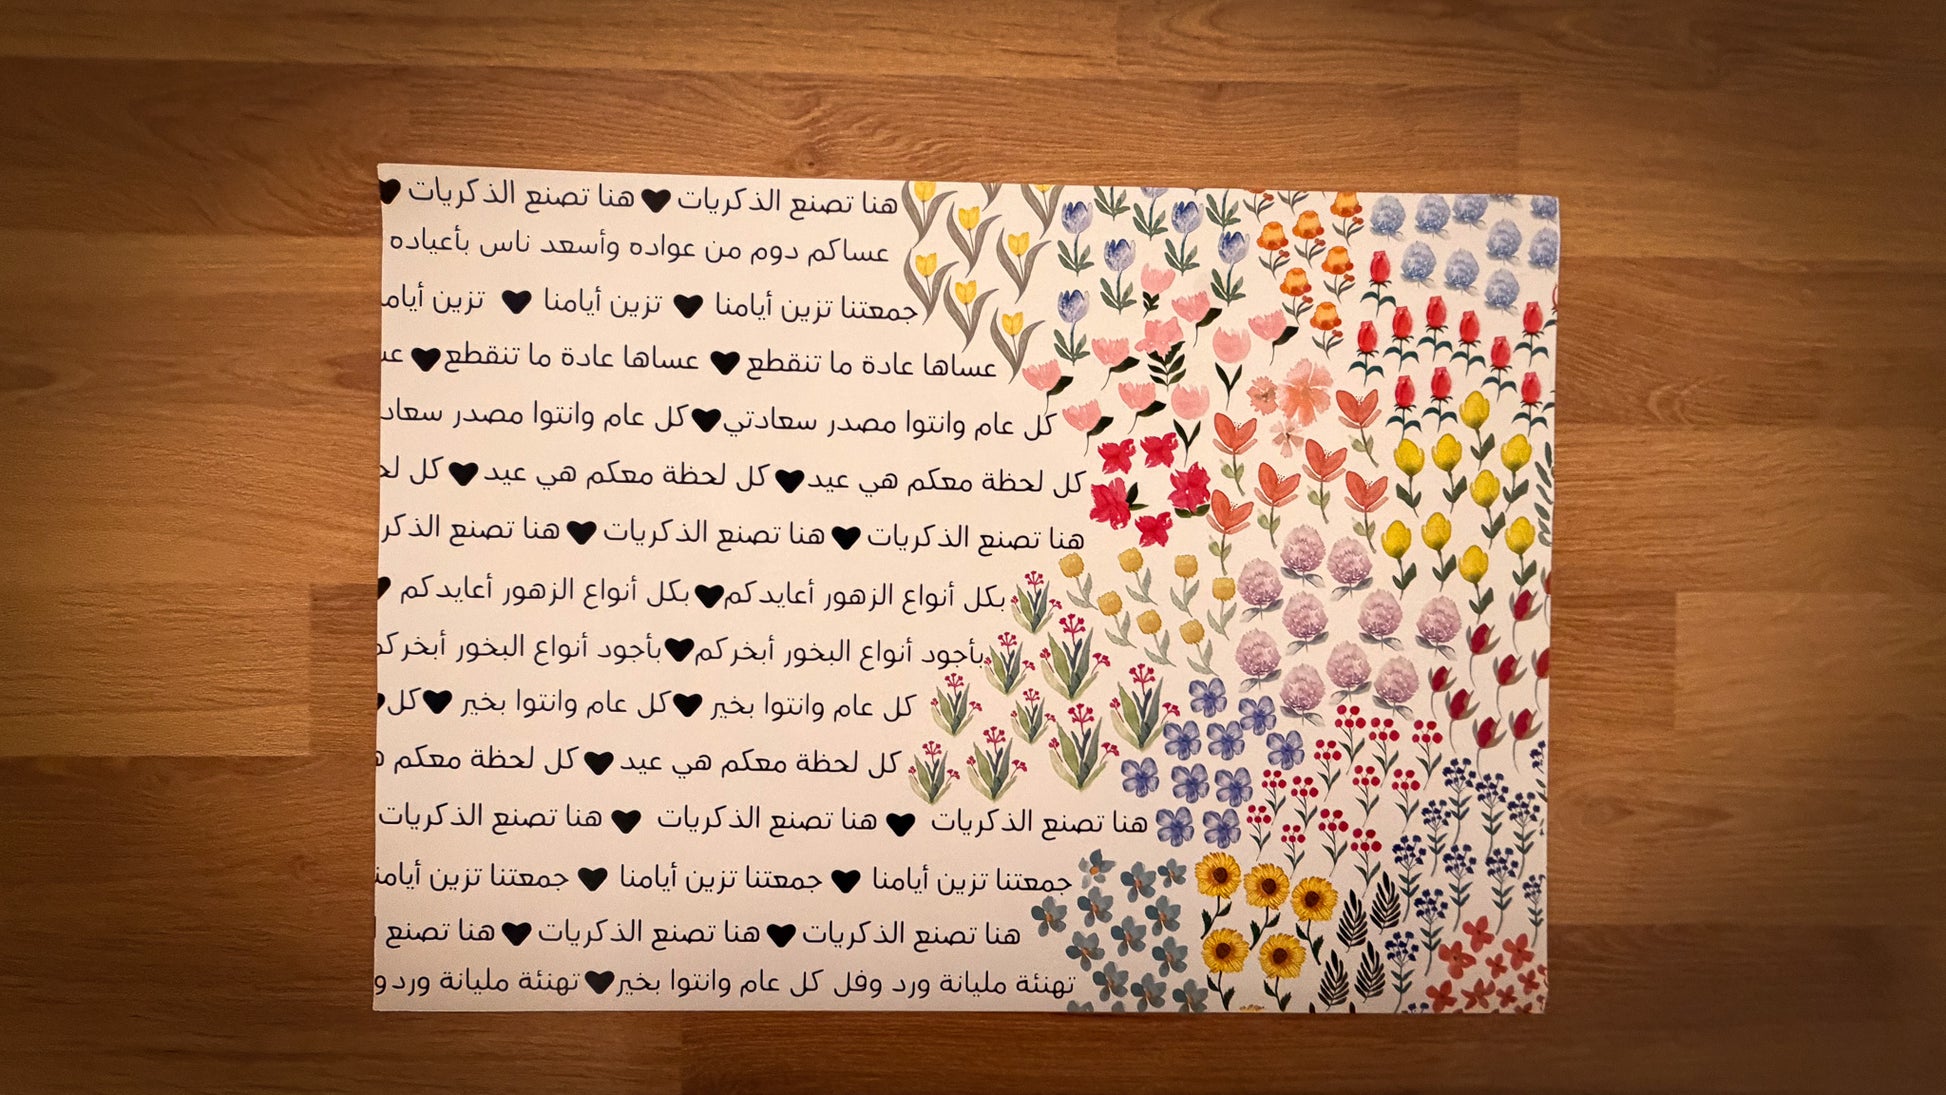 هنا تصنع الذكريات هنا تصنع الذكريات
عساكم دوم من عواده وأسعد ناس بأعياده
جمعتنا تزين أيامنا تزين أيامنا تزين
عساها عادة ما تنقطع عساها عادة ما تنقطع
كل عام وانتوا مصدر سعادتي كل عام وانتوا مصدر
كل لحظة معكم هي عيد كل لحظة معكم هي عيد كل
هنا تصنع الذكريات هنا تصنع الذكريات هنا تصنع
بكل أنواع الزهور أعايدكم بكل أنواع الزهور أعايدكم
بأجود أنواع البخور أبخركم بأجود أنواع البخور
كل عام وانتوا بخير كل عام وانتوا بخير كل
كل لحظة معكم هي عيد كل لحظة معكم
هنا تصنع الذكريات هنا تصنع الذكريات هنا تصنع الذكريات
جمعتنا تزين أيامنا جمعتنا تزين أيامنا جمعتنا تزين
هنا تصنع الذكريات هنا تصنع الذكريات هنا تصنع
تهنئة مليانة ورد وفل كل عام وانتوا بخير تهنئة مليانة ورد